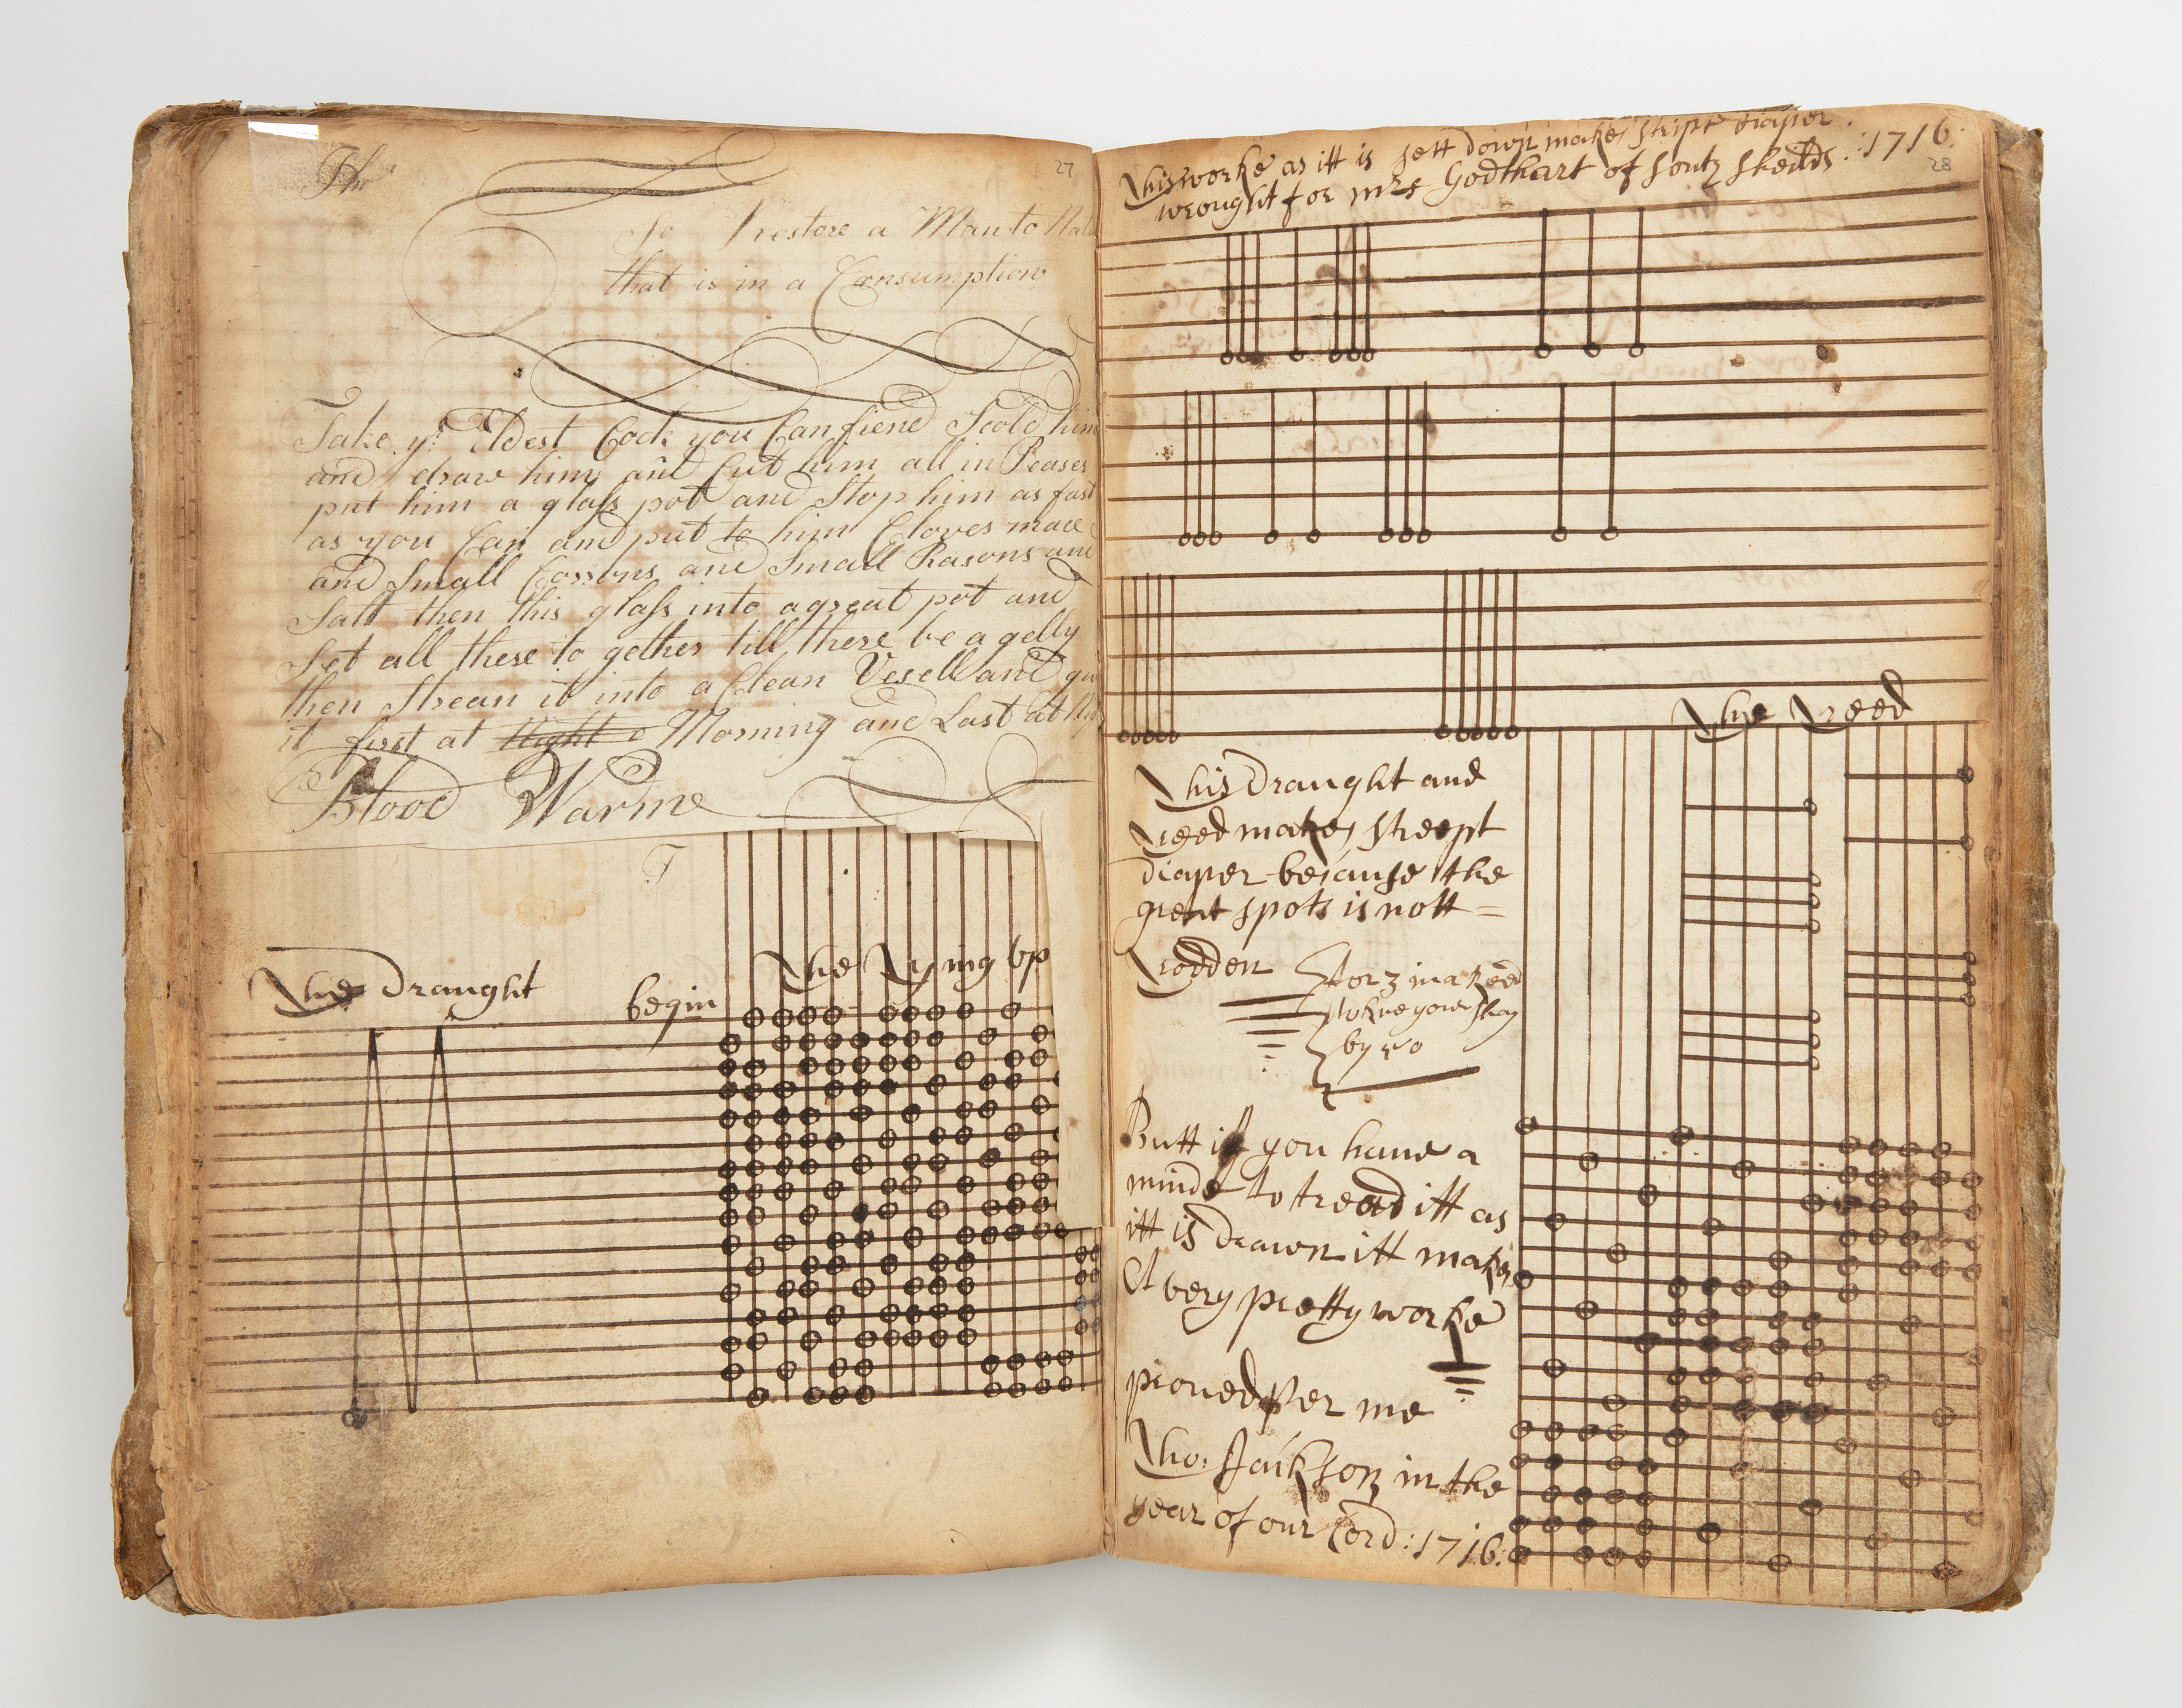 27
To restore a Man to
that is in a Consumption
Take yᵉ Eldest Cock you Can fiend Scold him
and draw him and Cut him all in Peases
put him a glass pot and Stop him as fast
as you Can and put to him Cloves mace
and Small Corrons and Small Rasons and
Salt then this glass into a great pot and
Set all these to gether till there be a gelly
then Strean it into a Clean Vesell and
it first at Night Morning and Last at
Blood Warme
T
The Draught
begin
The Tying up
This worke as itt is sett down makes stript diaper
wrought for mrs Godthart of soutz sheilds :1716:
28
The Treed
This Draught and
Treed makes streept
diaper because the
great spots is nott =
Trodden
for 3 in a Reed
by 40
Butt if you have a
minde to tread itt as
itt is Drawn itt makes
A very pretty worke
proved Per me
Tho: Jackson in the
year of our Lord :1716: